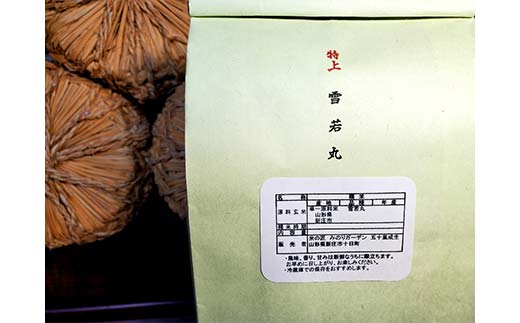 特上 雪若丸
名 称 精米
産 地 品 種 年 産
原料玄米 単一原料米 雪若丸
山形県
新庄市
精米時期
内 容 量
販 売 者 米の匠 みのりガーデン 五十嵐成生
山形県新庄市十日町
・風味、香り、甘みは新鮮なうちに際立ちます。
お早めに召し上がり、お楽しみください。
・冷蔵庫での保存をおすすめします。